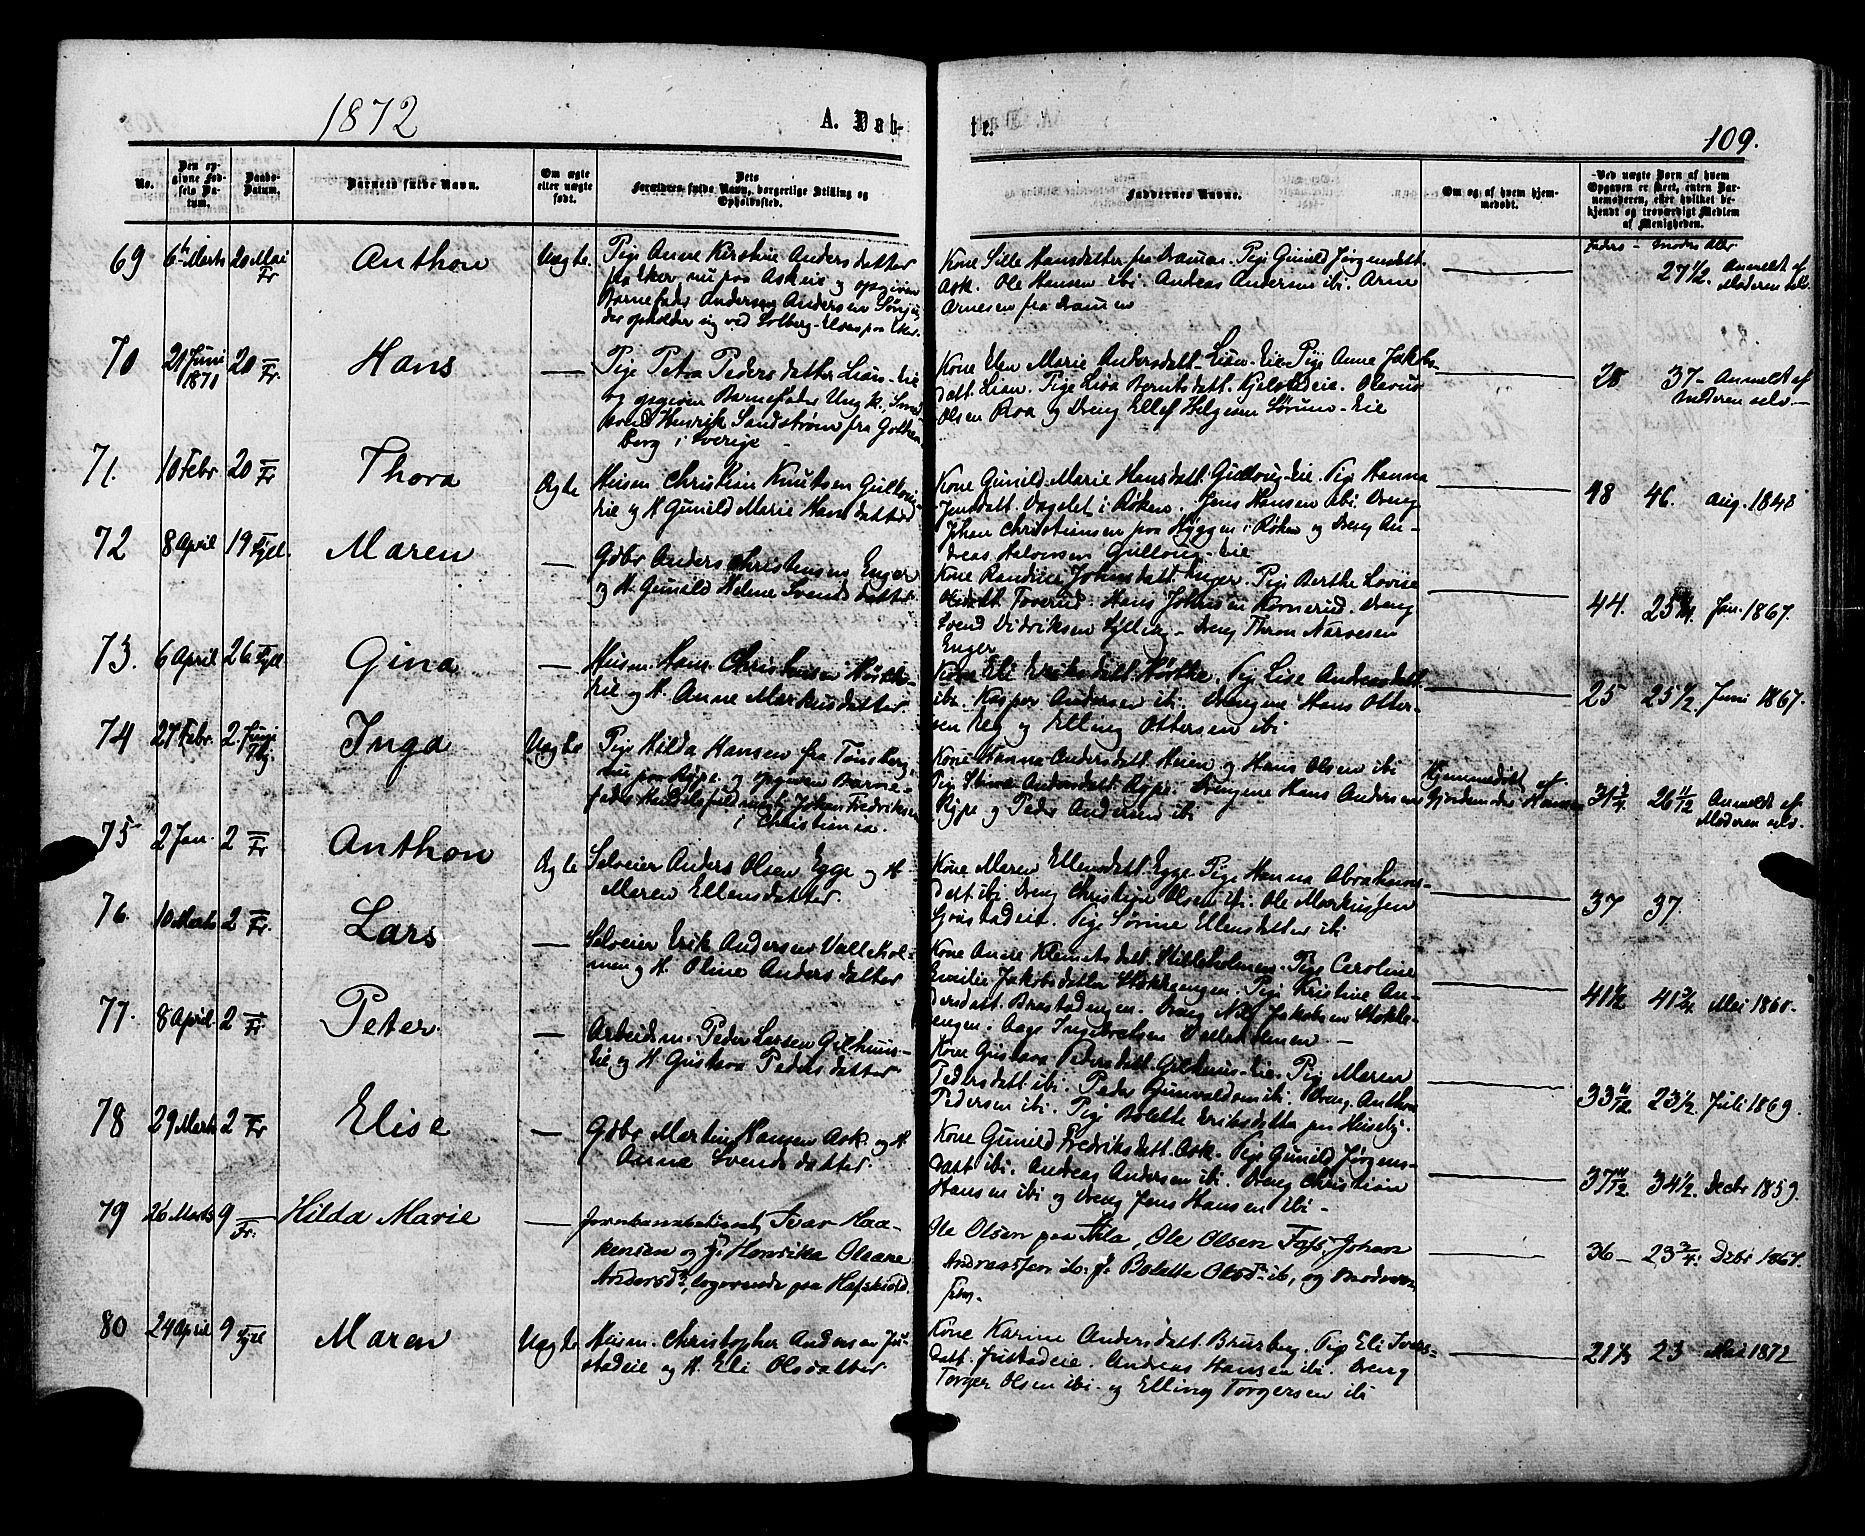 1872
A. Døb-
te.
109.
No.
Den opgivne Fødsels Datum.
Daabs-Datum.
Barnets fulde Navn.
Om ægte eller uægte født.
Dets Forældres fulde Navn, borgerlige Stilling og Opholdssted.
Faddernes Navne.
Om og af hvem hjemmedøbt.
Ved uægte Børn af hvem Opgaven er skeet, enten Barnemoderen, eller hvilket bekjendt og troværdigt Medlem af Menigheden.
Faders - Moders Alder
69 6te Marts 20 Mai Fr Anthon Uægte.
Pige Anne Kirstine Andersdatter
fra Eker nu paa Askeie og opgiven
Barnefader Andersen
der opholder sig ved Solberg-Elven paa Eker.
Kone Sille Hansdatter fra Dramm. Pige Gunild Jørgensdatt.
Ask. Ole Hansen ibi. Andreas Andersen ibi. Arne
Arnesen fra Dramm
27 1/2. Anmeldt af
Moderen selv.
70 21 Juni 1871 20 Fr. Hans —
Pige Petra Pedersdatter Lian-eie
og opgiven Barnefader Ungk.
Henrik Sandstrøm fra Gothen
berg i Sverige -
Kone Elen Marie Andersdatt. Lian-Eie. Pige Anne Jakobs-
datt. Lian. Pige Lisa Berntsdatt. Kjelstadeie. Olevus
Olsen Roa og Dreng Ellef Helgesen Sørum-eie
28 37 - Anmeldt af
Moderen selv -
71. 10 Febr 20 Fr Thora Ægte
Husm Christian Knutsen Gullaug-
eie og H Gunild Marie Hansdatter
Kone Gunild Marie Hansdatt. Gullaug-eie. Pige Hanna
Jensdatt. Dagslet i Røken. Jens Hansen ibi. Dreng
Johan Christiansen paa Hyggen i Røken og Dreng An-
dreas Halvorsen Gullaug-eie
48 46. Aug. 1848
72 8 April 19 Fjll. Maren —
Gdbr Anders Christensen Enger
og H. Gunild Helene Svendsdatter.
Kone Randine Johnsdatt. Enger. Pige Berthe Lovise
Toverud. Hans Johnsen Kornerud. Dreng
Svend Didriksen Sylling - Dreng Thron Narvesen
Enger
44. 25 Jan. 1867.
73. 6 April 26 Fjll Gina —
Husm. Hans Christensen
eie og H. Anne Markusdatter.
Kone Eli Eriksdatt. Pige Lise Andersdatt.
ibi. Kasper Andersen ibi. Drengene Hans Otter-
sen Reg og Elling Ottersen ibi
25 25 1/2 Juni 1867.
74 27 Febr. 2 Juni Inga Uægte
Pige Hilda Hansen fra Tønsberg
nu paa Rype og opgiven Barne-
fader Handelsfuldmægt. Johan Fredriksen
i Christiania.
Kone Hanna Andersdatt. Heien og Hans Olsen ibi
Pige Andersdatt. Rype. Drengene Hans Andersen
Rype og Peder Andersen ibi
Hjemmedøbt af
Gjordemoder Hansen
26 11/12 Anmeldt af
Moderen selv.
75 2 Jan. 2 Fr Anthon Ægte
Selveier Anders Olsen Egge og H
Maren Ellensdatter.
Kone Maren Ellensdatt. Egge. Pige Hanna Abrahams-
datt ibi. Dreng Christian Olsen ibi. Ole Markussen
Pige Sørine Ellensdatter ibi
37 37.
76. 10 Marts 2 Fr. Lars —
Selveier Erik Andersen Vallehol-
men og H. Oline Andersdatter
Kone Anne Klemetsdatt. Villeholmen. Pige Caroline
Emilie Jakobsdatter Stokkengen. Pige Kristine An-
dersdatt. Brastadengen. Dreng Nils Jakobsen Stokk-
engen. Aage Ingebretsen Valleholmen -
41 1/2 41 3/4 Mai 1860.
77. 8 April 2 Fr Peter. —
Arbeidsm. Peder Larsen Gilhuus-
eie og H Gustava Pedersdatter
Kone Gustava Pedersdatt. Gilhuus-eie. Pige Maren
Pedersdatt ibi. Peder Gunvaldsen ibi. Dreng Anthon
Pedersen ibi. Pige Bolette Eriksdatter paa Huseby.
33 11/12 23 1/2 Juli 1869.
78 29 Marts 2 Fr Elise —
Gdbr Martin Hansen Ask og H
Anne Svendsdatter.
Kone Gunild Fredriksdatt. Ask. Pige Gunild Jørgens-
datt ibi. Andreas Andersen ibi. Dreng Christian
Hansen ibi og Dreng Jens Hansen ibi -
37 11/12 34 1/2 Decbr 1859.
79 26 Marts 9 Fr. Hilda Marie —
Jernbanebetjent Ivar Haa-
kensen og H. Henrika Oleane
Andersd., logerende paa Hafskjold.
Ole Olsen paa Ole Olsen Johan
Andreassen ib. P. Bolette Olsd. ib, og Moderen
selv.
36 - 23 3/4. Debr 1867.
80 24 April 9 Fjll Maren Uægte
Husm. Christopher Andersen Ju-
stadeie og H. Eli Olsdatter
Kone Karine Andersdatt. Brurberg. Pige Eli Ivers-
datt. Justadeie. Andreas Hansen ibi. Dreng
Torger Olsen ibi og Elling Torgersen ibi
23 Mai 1872